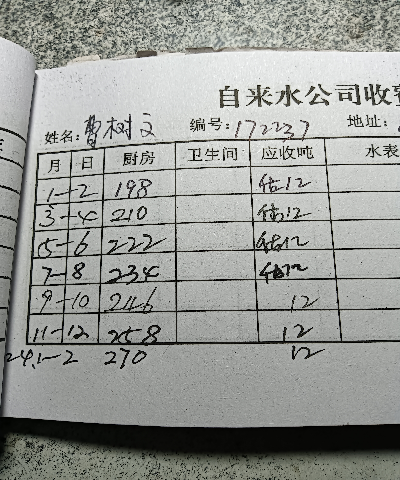 自来水公司收费
姓名:曹树文 编号:172237 地址:
月 日 厨房 卫生间 应收吨 水表
1-2 198 估12
3-4 210 估12
5-6 222 估12
7-8 234 估12
9-10 246 12
11-12 258 12
24.1-2 270 12